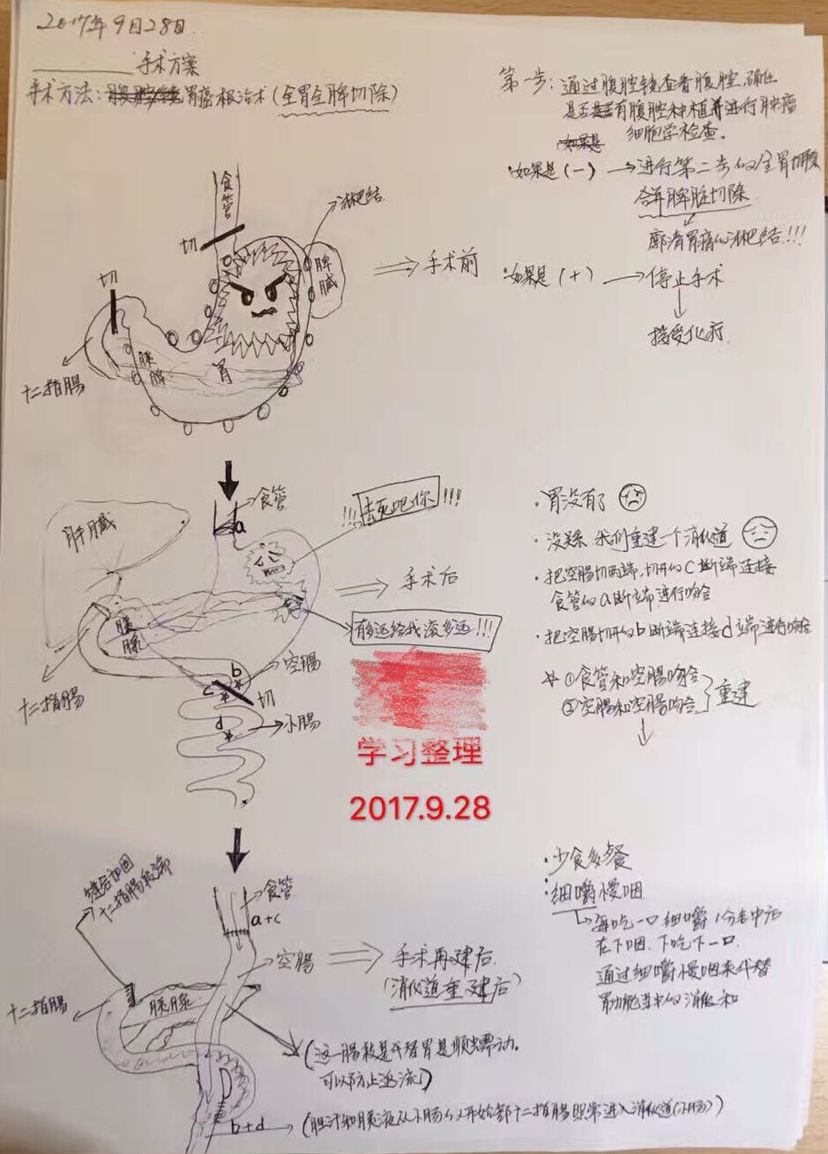 2017年9月28日
手术方案
手术方法:胃癌根治术(全胃全脾切除)
第一步:通过腹腔镜查看腹腔,确认
是否有腹腔种植并进行肿瘤
细胞学检查。
·如果是(-)→进行第二步的全胃切除
合并脾脏切除
廓清胃癌的淋巴结!!!
·如果是(+)→停止手术
接受化疗
食管
淋巴结
切
脾臓
⇒手术前
切
胰臓
胃
十二指腸
食管
a
!!!去死吧你!!!
肝臓
⇒手术后
有多远给我滚多远!!!
胰臓
十二指腸
b
空腸
c
切
d
小腸
·胃没有了
·没关系 我们重建一个消化道
·把空腸切两端,切开的c断端连接
食管的a断端进行吻合
·把空腸切开的b断端连接d端进行吻合
①食管和空腸吻合
②空腸和空腸吻合
重建
学习整理
2017.9.28
缝合加固
十二指腸段端
食管
a+c
空腸
⇒手术再建后
(消化道重建后)
十二指腸
胰臓
(这一腸段是代替胃是顺出蠕动。
可以防止逆流)
b+d→(胆汁和胰液从小肠的开始部十二指腸照常进入消化道(小肠))
·少食多餐
·细嚼慢咽
每吃一口细嚼1分者中后
在下咽.下吃下一口.
通过细嚼慢咽来代替
胃功能当中的消化和